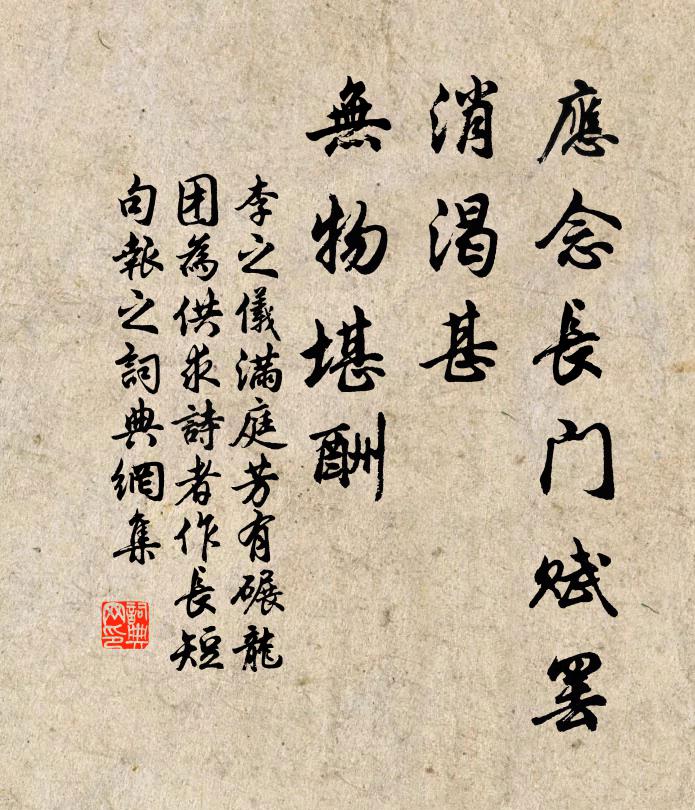 應念長門賦罷
消渴甚
無物堪酬
李之儀滿庭芳有碾龍
团為供求詩者作長短
句報之詞典網集
詞典网印